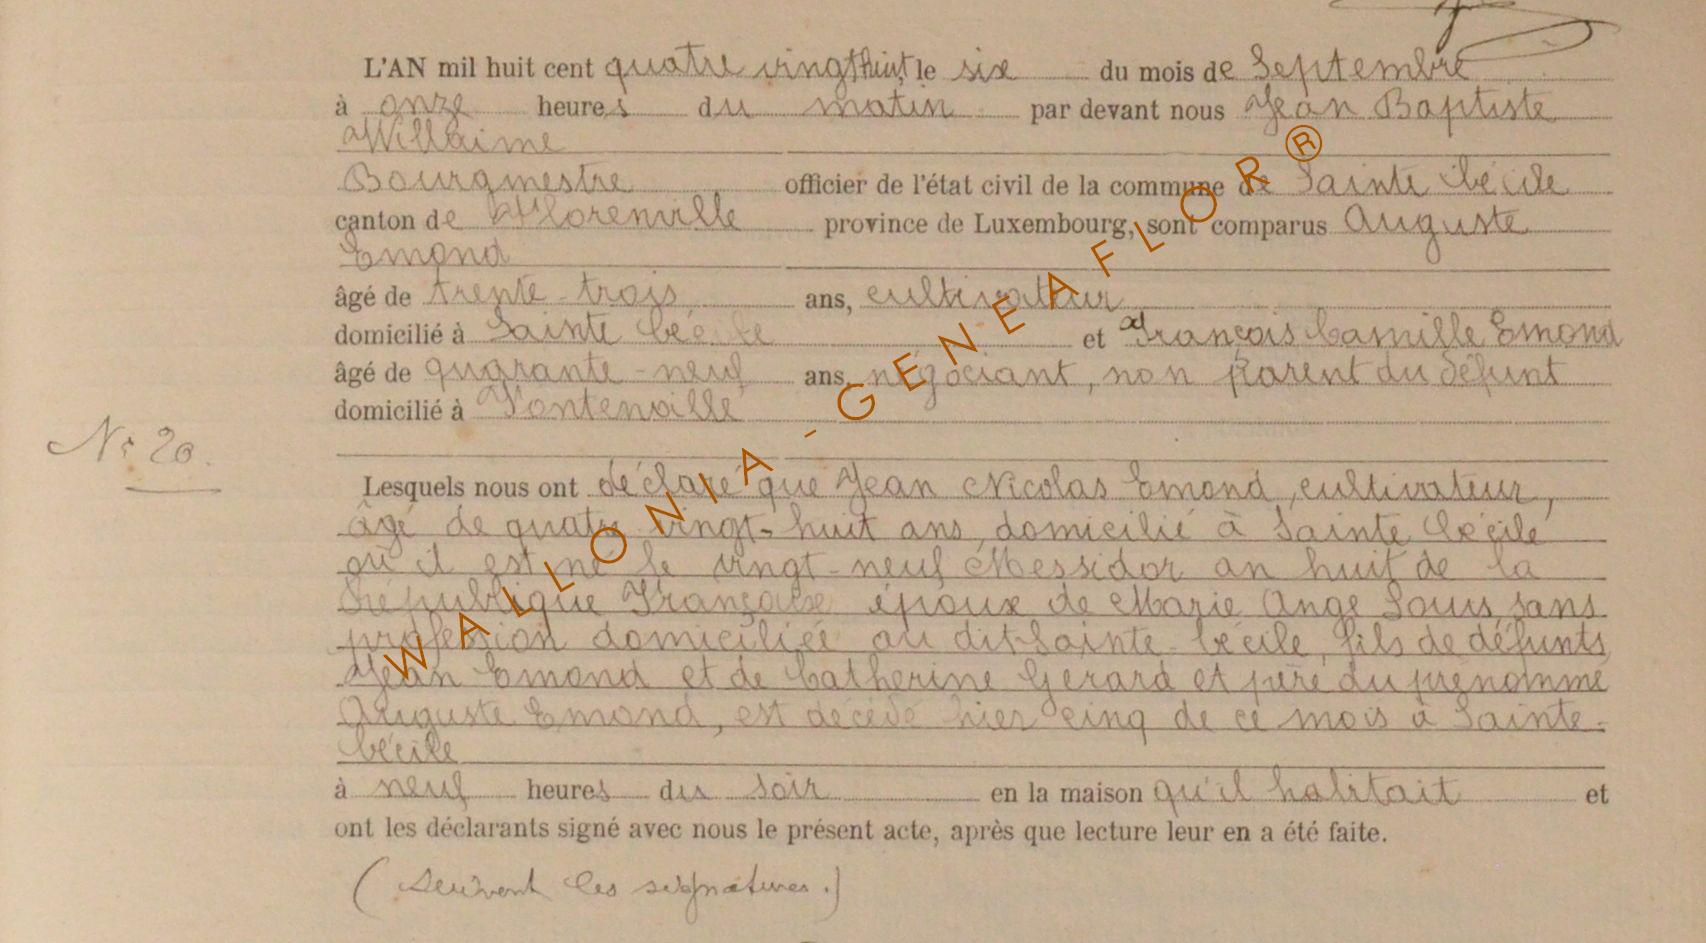 L'AN mil huit cent quatre vingt huit le six du mois de Septembre
à onze heures du matin par devant nous Jean Baptiste
Willaime
Bourgmestre officier de l'état civil de la commune de Sainte Cécile
canton de Florenville province de Luxembourg, sont comparus Auguste
Emond
âgé de trente-trois ans, cultivateur
domicilié à Sainte Cécile et François Camille Emond
âgé de quarante-neuf ans, négociant, non parent du défunt
domicilié à Fontenoille
N° 20.
Lesquels nous ont déclaré que Jean Nicolas Emond, cultivateur,
âgé de quatre vingt-huit ans, domicilié à Sainte Cécile
où il est né le vingt-neuf Messidor an huit de la
République Française époux de Marie Ange Louis sans
profession domiciliée au dit Sainte-Cécile, fils de défunts
Jean Emond et de Catherine Gerard et père du prénommé
Auguste Emond, est décédé hier cinq de ce mois à Sainte-
Cécile
à neuf heures du soir en la maison qu'il habitait et
ont les déclarants signé avec nous le présent acte, après que lecture leur en a été faite.
(Suivent les signatures.)
WALLONIA - GENEAFLOR ®